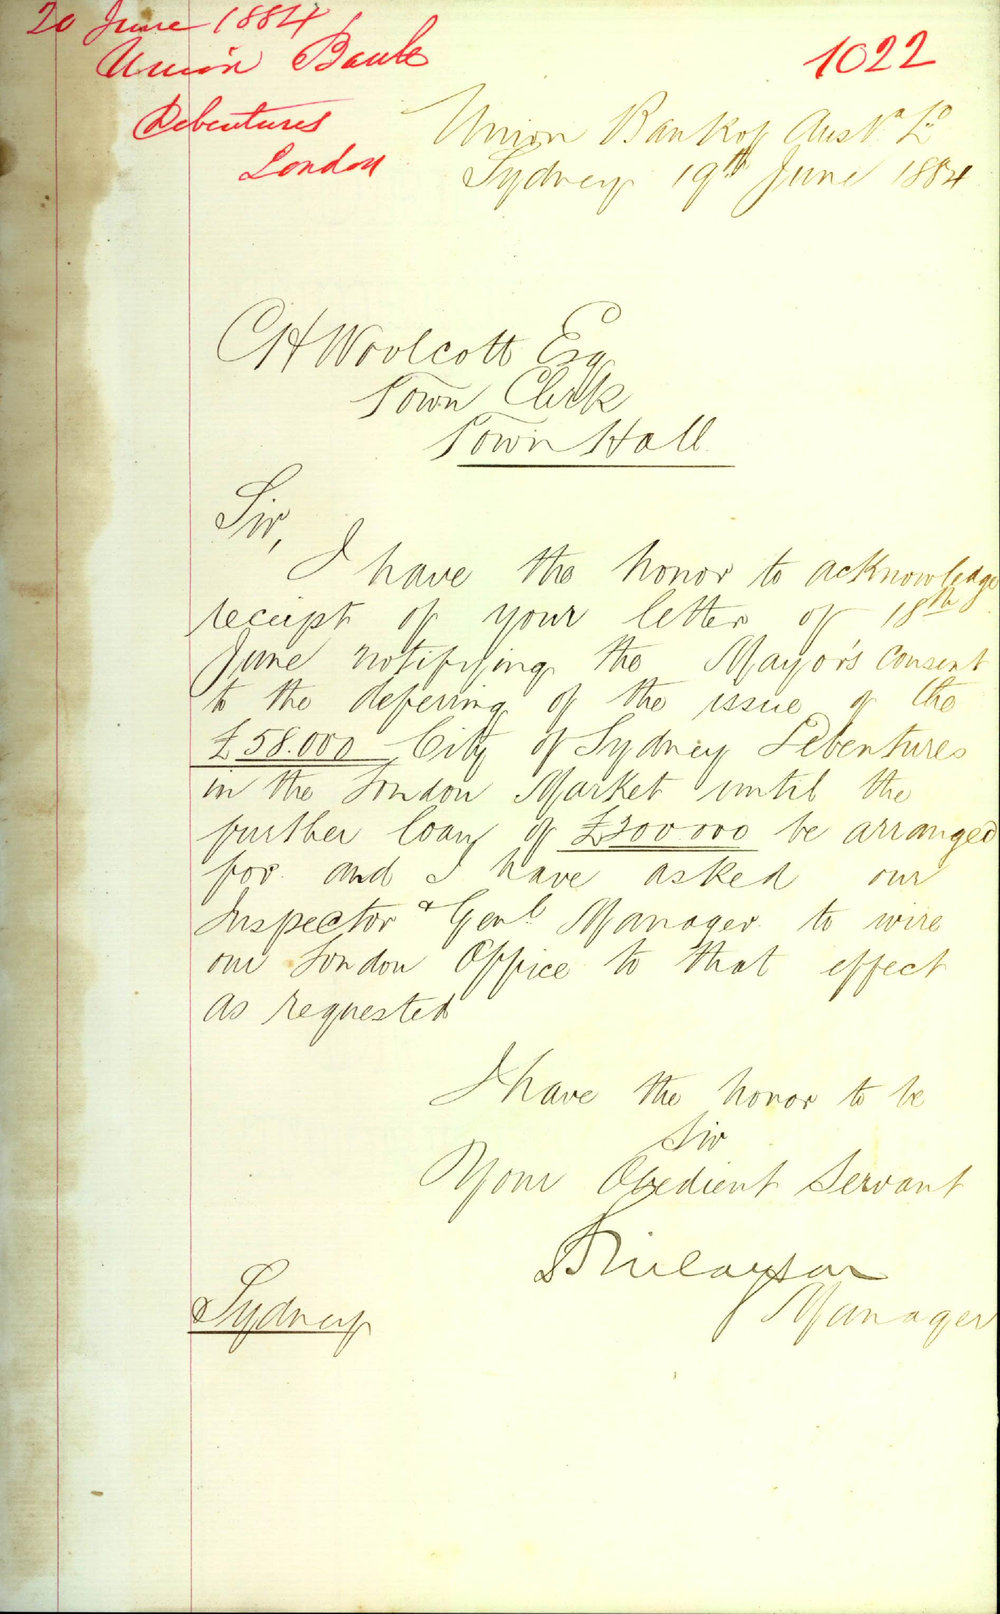 20 June 1884
Union Bank
Debentures
London
1022
Union Bank of Aus'a Ld
Sydney 19th June 1884
CH Woolcott Esq
Town Clerk
Town Hall
Sir,
I have the honor to acknowledge
receipt of your letter of 18th
June notifying the Mayor's consent
to the defering of the issue of the
£58.000 City of Sydney Debentures
in the London Market until the
further loan of £200.000 be arranged
for and I have asked our
Inspector & Genl Manager to wire
our London Office to that effect
as requested
I have the honor to be
Sir
Your Obedient Servant
Manager
Sydney